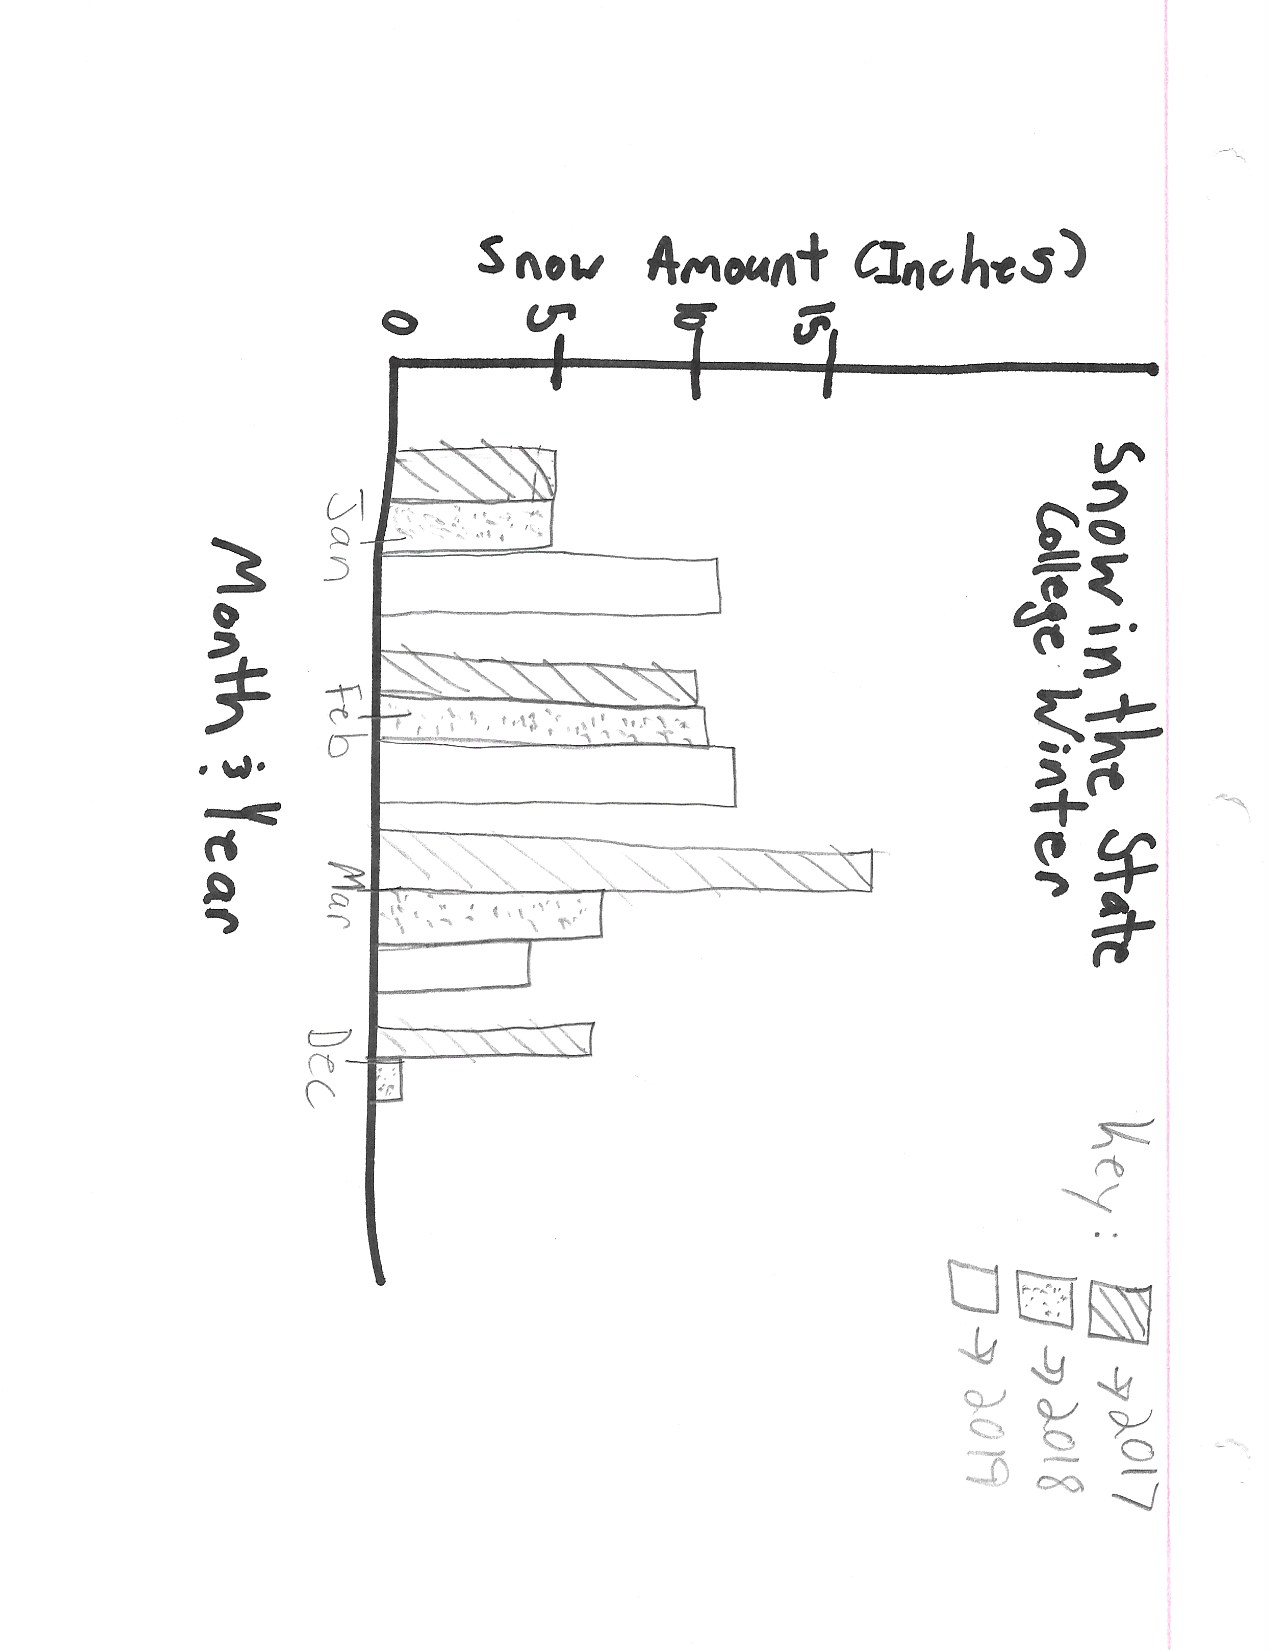 Snow in the State
College Winter
Key:
→ 2017
→ 2018
→ 2019
Snow Amount (Inches)
15
10
5
0
Jan Feb Mar Dec
Month & Year